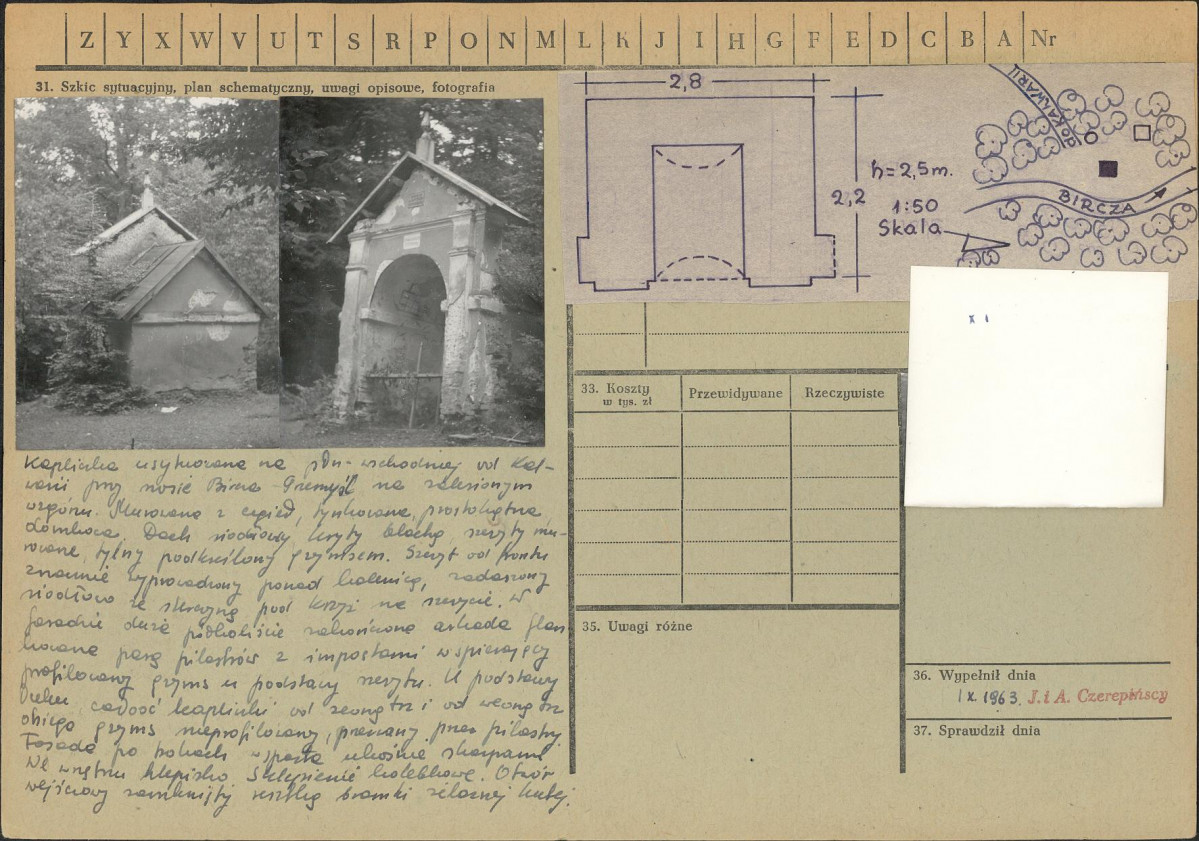 Z Y X W V U T S R P O N M L K J I H G F E D C B A Nr
31. Szkic sytuacyjny, plan schematyczny, uwagi opisowe, fotografia
2,8
2,2
h=2,5m.
1:50
Skala
DO KALWARII
BIRCZA
Kapliczka usytuowana na płn-wschodniej od Kal-
warii przy szosie Bircza-Przemyśl, na zalesionym
wzgórzu. Murowana z cegieł, tynkowana, prostokątna,
domkowa. Dach siodłowy kryty blachą, szczyty mu-
rowane, tylny podkreślony gzymsem. Szczyt od frontu
znacznie wyprowadzony ponad kalenicę, zadaszony
siodłowo ze skrzyną pod krzyż na szczycie. W
fasadzie duża półkoliście zakończona arkada flan-
kowana parą pilastrów z impostami wspierający
profilowany gzyms u podstawy szczytu. U podstawy
łuku całość kapliczki od zewnątrz i od wewnątrz
obiega gzyms nieprofilowany, przerwany przez pilastry.
Fasada po bokach wsparta ukośnie skarpami.
We wnętrzu klepisko. Sklepienie kolebkowe. Otwór
wejściowy zamknięty resztką bramki żelaznej kutej.
33. Koszty
w tys. zł
Przewidywane
Rzeczywiste
35. Uwagi różne
x i
36. Wypełnił dnia
IX.1963. J. i A. Czerepińscy
37. Sprawdził dnia